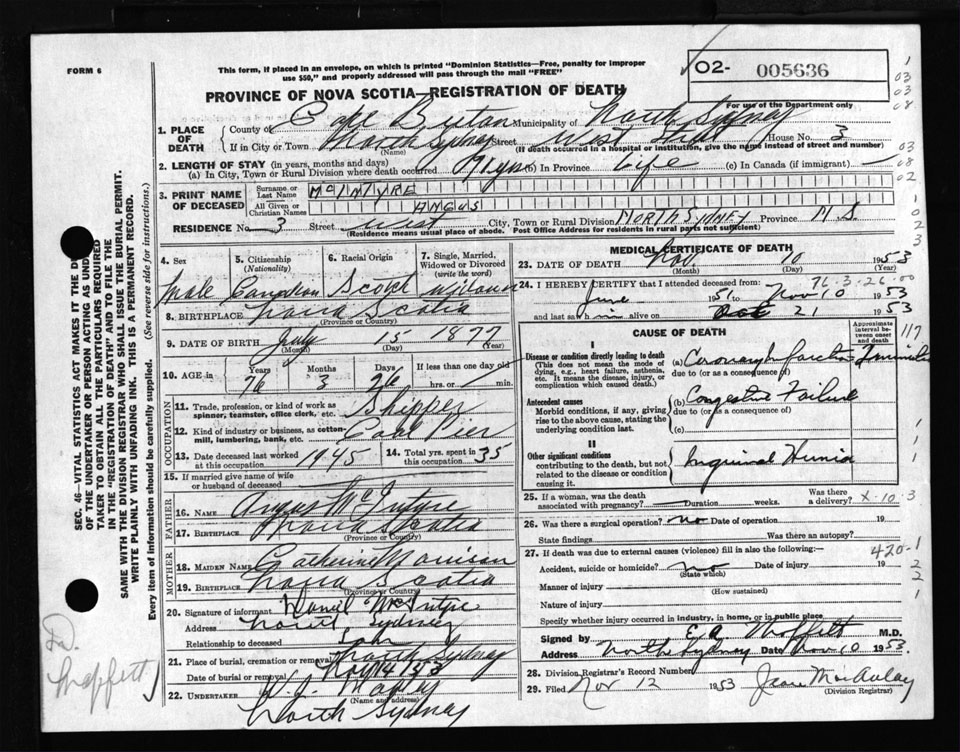 FORM 6
This form, if placed in an envelope, on which is printed "Dominion Statistics—Free, penalty for improper
use $50," and properly addressed will pass through the mail "FREE"
O2- 005636
For use of the Department only
PROVINCE OF NOVA SCOTIA—REGISTRATION OF DEATH
1. PLACE OF DEATH
County of Cape Breton Municipality of North Sydney
If in City or Town North Sydney Street West Street House No. 3
(Name) (If death occurred in a hospital or institution, give the name instead of street and number)
2. LENGTH OF STAY (in years, months and days)
(a) In City, Town or Rural Division where death occurred (b) In Province Life (c) In Canada (if immigrant) —
3. PRINT NAME OF DECEASED
Surname or Last Name McINTYRE
All Given or Christian Names ANGUS
RESIDENCE No. 3 Street West City, Town or Rural Division NORTH SYDNEY Province N.S.
(Residence means usual place of abode. Post Office Address for residents in rural parts not sufficient)
4. Sex
Male
5. Citizenship (Nationality)
Canadian
6. Racial Origin
Scotch
7. Single, Married, Widowed or Divorced (write the word)
Widower
8. BIRTHPLACE Nova Scotia
(Province or Country)
9. DATE OF BIRTH July 15 1877
(Month) (Day) (Year)
10. AGE in Years 76 Months 3 Days 26 If less than one day old
hrs. or min.
OCCUPATION
11. Trade, profession, or kind of work as spinner, teamster, office clerk, etc. Shipper
12. Kind of industry or business, as cotton-mill, lumbering, bank, etc. Coal Pier
13. Date deceased last worked at this occupation 1945
14. Total yrs. spent in this occupation 35
15. If married give name of wife or husband of deceased
FATHER
16. NAME Angus McIntyre
17. BIRTHPLACE Nova Scotia
(Province or Country)
MOTHER
18. MAIDEN NAME Catherine Morrison
19. BIRTHPLACE Nova Scotia
(Province or Country)
20. Signature of informant Daniel McIntyre
Address North Sydney
Relationship to deceased Son
21. Place of burial, cremation or removal North Sydney
Date of burial or removal Nov 14 1953
22. UNDERTAKER
(Name and address)
North Sydney
MEDICAL CERTIFICATE OF DEATH
23. DATE OF DEATH Nov 10 1953
(Month) (Day) (Year)
76-3-26-00
24. I HEREBY CERTIFY that I attended deceased from:
June 1951 to Nov 10 1953
and last saw him alive on Oct 21 1953
CAUSE OF DEATH
Approximate interval between onset and death
I
Disease or condition directly leading to death
(This does not mean the mode of dying, e.g., heart failure, asthenia, etc. It means the disease, injury, or complication which caused death.)
(a)
due to (or as a consequence of)
Antecedent causes
Morbid conditions, if any, giving rise to the above cause, stating the underlying condition last.
(b) Congestive Failure
due to (or as a consequence of)
(c)
II
Other significant conditions
contributing to the death, but not related to the disease or condition causing it.
Inguinal Hernia
25. If a woman, was the death associated with pregnancy? Duration weeks. Was there a delivery?
X-10-3
26. Was there a surgical operation? no Date of operation 19
State findings Was there an autopsy?
27. If death was due to external causes (violence) fill in also the following:—
420-1
Accident, suicide or homicide? no Date of injury 19
(State which)
Manner of injury
(How sustained)
Nature of injury
Specify whether injury occurred in industry, in home, or in public place
Signed by E.A. Moffett M.D.
Address North Sydney Date Nov 10 1953
28. Division Registrar's Record Number
29. Filed Nov 12 1953 Jean MacAulay
(Division Registrar)
SEC. 46—VITAL STATISTICS ACT MAKES IT THE DU
OF THE UNDERTAKER OR PERSON ACTING AS UND
TAKER TO OBTAIN ALL THE PARTICULARS REQUIRED
IN THE "REGISTRATION OF DEATH" AND TO FILE THE
SAME WITH THE DIVISION REGISTRAR WHO SHALL ISSUE THE BURIAL PERMIT.
WRITE PLAINLY WITH UNFADING INK. THIS IS A PERMANENT RECORD.
Every item of information should be carefully supplied. (See reverse side for instructions.)
117
Dr. Moffett